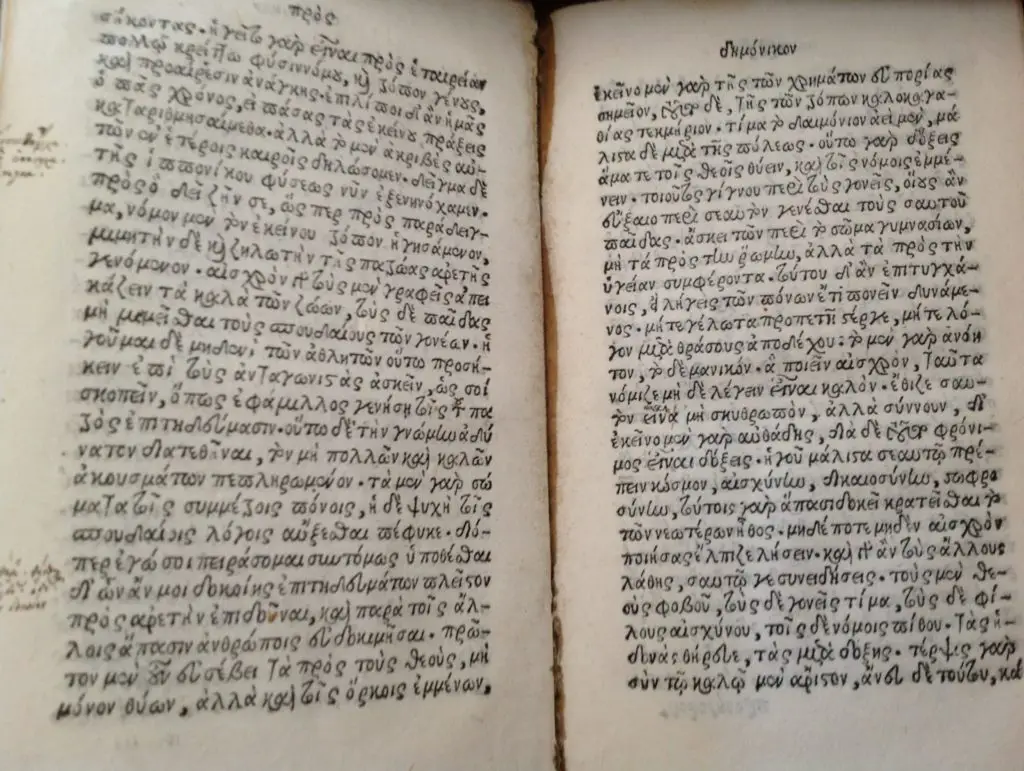 πρὸς
σήκοντας. ἡγεῖτο γὰρ εἶναι πρὸς ἑταιρείαν
πολλῷ κρείττω φύσιν νόμου, καὶ τρόπον γένους,
καὶ προαίρεσιν ἀνάγκης. ἐπιλίποι δ' ἂν ἡμᾶς
ὁ πᾶς χρόνος, εἰ πάσας τὰς ἐκείνου πράξεις
καταριθμησαίμεθα. ἀλλὰ τὸ μὲν ἀκριβὲς αὐ-
τῶν ἐν ἑτέροις καιροῖς δηλώσομεν. δεῖγμα δὲ
τῆς ἱππονίκου φύσεως νῦν ἐξενηνόχαμεν.
πρὸς ὃ δεῖ ζῆν σε, ὥς περ πρὸς παράδειγ-
μα, νόμον μὲν τὸν ἐκείνου τρόπον ἡγησάμενον,
μιμητὴν δὲ καὶ ζηλωτὴν τῆς πατρώας ἀρετῆς
γενόμενον. αἰσχρὸν γὰρ τοὺς μὲν γραφεῖς ἀπει
κάζειν τὰ καλὰ τῶν ζώων, τοὺς δὲ παῖδας
μὴ μιμεῖσθαι τοὺς σπουδαίους τῶν γονέων. ἡ
γοῦμαι δὲ μηδενὶ τῶν ἀθλητῶν οὕτω προσή-
κειν ἐπὶ τοὺς ἀνταγωνιστὰς ἀσκεῖν, ὡς σοὶ
σκοπεῖν, ὅπως ἐφάμιλλος γενήσῃ τοῖς τοῦ πα
τρὸς ἐπιτηδεύμασιν. οὕτω δὲ τὴν γνώμην ἀδύ
νατον διατεθῆναι, τὸν μὴ πολλῶν καὶ καλῶν
ἀκουσμάτων πεπληρωμένον. τὰ μὲν γὰρ σώ
ματα τοῖς συμμέτροις πόνοις, ἡ δὲ ψυχὴ τοῖς
σπουδαίοις λόγοις αὔξεσθαι πέφυκε. διό-
περ ἐγώ σοι πειράσομαι συντόμως ὑποθέσθαι
δι' ὧν ἄν μοι δοκοίης ἐπιτηδευμάτων πλεῖστον
πρὸς ἀρετὴν ἐπιδοῦναι, καὶ παρὰ τοῖς ἄλ-
λοις ἅπασιν ἀνθρώποις εὐδοκιμῆσαι. πρῶ-
τον μὲν οὖν εὐσέβει τὰ πρὸς τοὺς θεοὺς, μὴ
μόνον θύων, ἀλλὰ καὶ τοῖς ὅρκοις ἐμμένων,
δημόνικον
ἐκεῖνο μὲν γὰρ τῆς τῶν χρημάτων εὐπορίας
σημεῖον, τοῦτο δὲ, τῆς τῶν τρόπων καλοκαγα-
θίας τεκμήριον. τίμα τὸ δαιμόνιον ἀεὶ μὲν, μά
λιστα δὲ μετὰ τῆς πόλεως. οὕτω γὰρ δόξεις
ἅμα τε τοῖς θεοῖς θύειν, καὶ τοῖς νόμοις ἐμμέ-
νειν. τοιοῦτος γίγνου περὶ τοὺς γονεῖς, οἵους ἂν
εὔξαιο περὶ σεαυτὸν γενέσθαι τοὺς σαυτοῦ
παῖδας. ἄσκει τῶν περὶ τὸ σῶμα γυμνασίων,
μὴ τὰ πρὸς τὴν ῥώμην, ἀλλὰ τὰ πρὸς τὴν
ὑγείαν συμφέροντα. τούτου δ' ἂν ἐπιτυγχά-
νοις, εἰ λήγεις τῶν πόνων ἔτι πονεῖν δυνάμε-
νος. μήτε γέλωτα προπετῆ στέργε, μήτε λό-
γον μετὰ θράσους ἀποδέχου: τὸ μὲν γὰρ ἀνόη
τον, τὸ δὲ μανικόν. ἃ ποιεῖν αἰσχρὸν, ταῦτα
νόμιζε μὴ δὲ λέγειν εἶναι καλὸν. ἔθιζε σαυ-
τὸν εἶναι μὴ σκυθρωπὸν, ἀλλὰ σύννουν, δι'
ἐκεῖνο μὲν γὰρ αὐθάδης, διὰ δὲ τοῦτο φρόνι-
μος εἶναι δόξεις. ἡγοῦ μάλιστα σεαυτῷ πρέ-
πειν κόσμον, αἰσχύνην, δικαιοσύνην, σωφρο
σύνην, τούτοις γὰρ ἅπασι δοκεῖ κρατεῖσθαι τὸ
τῶν νεωτέρων ἦθος. μηδέ ποτε μηδὲν αἰσχρὸν
ποιήσας ἔλπιζε λήσειν. καὶ γὰρ ἂν τοὺς ἄλλους
λάθης, σαυτῷ γε συνειδήσεις. τοὺς μὲν θε-
οὺς φοβοῦ, τοὺς δὲ γονεῖς τίμα, τοὺς δὲ φί-
λους αἰσχύνου, τοῖς δὲ νόμοις πίθου. τὰς ἡ-
δονὰς θήρευε, τὰς μετὰ δόξης. τέρψις γὰρ
σὺν τῷ καλῷ μὲν ἄριστον, ἄνευ δὲ τούτου, κά